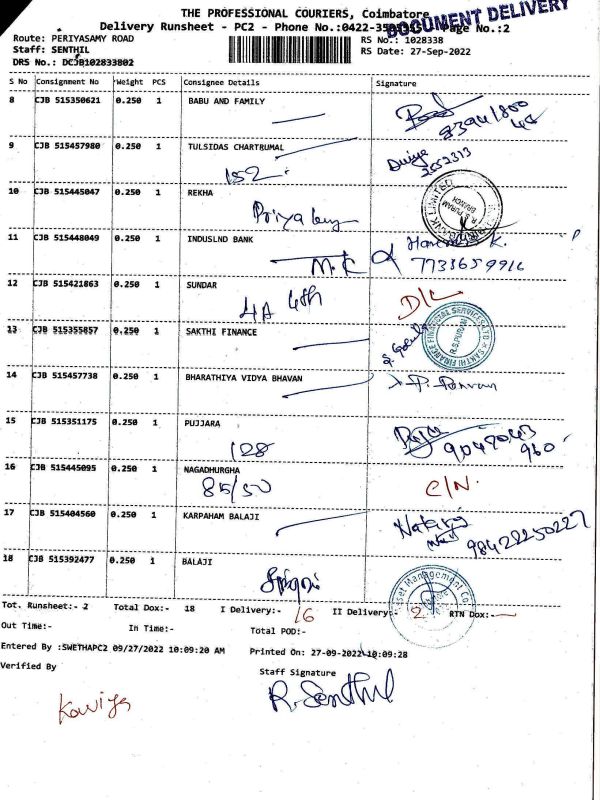 THE PROFESSIONAL COURIERS, Coimbatore
DOCUMENT DELIVERY
Delivery Runsheet - PC2 - Phone No.:0422- Page No.:2
Route: PERIYASAMY ROAD RS No.: 1028338
Staff: SENTHIL RS Date: 27-Sep-2022
DRS No.: DCJB102833802
S No Consignment No Weight PCS Consignee Details Signature
8 CJB 515350621 0.250 1 BABU AND FAMILY
9 CJB 515457980 0.250 1 TULSIDAS CHARTRUMAL
152
10 CJB 515445047 0.250 1 REKHA
Priya
R.S PURAM
11 CJB 515448049 0.250 1 INDUSLND BANK
M.K
7733659916
12 CJB 515421863 0.250 1 SUNDAR
4A 4th D/L
13 CJB 515355857 0.250 1 SAKTHI FINANCE
SAKTHI FINANCE FINANCIAL SERVICES LTD
R.S.PURAM
14 CJB 515457738 0.250 1 BHARATHIYA VIDYA BHAVAN
15 CJB 515351175 0.250 1 PUJJARA
128 9047043
960
16 CJB 515445095 0.250 1 NAGADHURGHA
85/50 C/N.
17 CJB 515404560 0.250 1 KARPAHAM BALAJI
98422250227
18 CJB 515392477 0.250 1 BALAJI
Asset Management Co
Tot. Runsheet:- 2 Total Dox:- 18 I Delivery:- 16 II Delivery:- 2 RTN Dox:-
Out Time:- In Time:- Total POD:-
Entered By :SWETHAPC2 09/27/2022 10:09:20 AM Printed On: 27-09-2022 10:09:28
Verified By Staff Signature
Kaviya R. Senthil